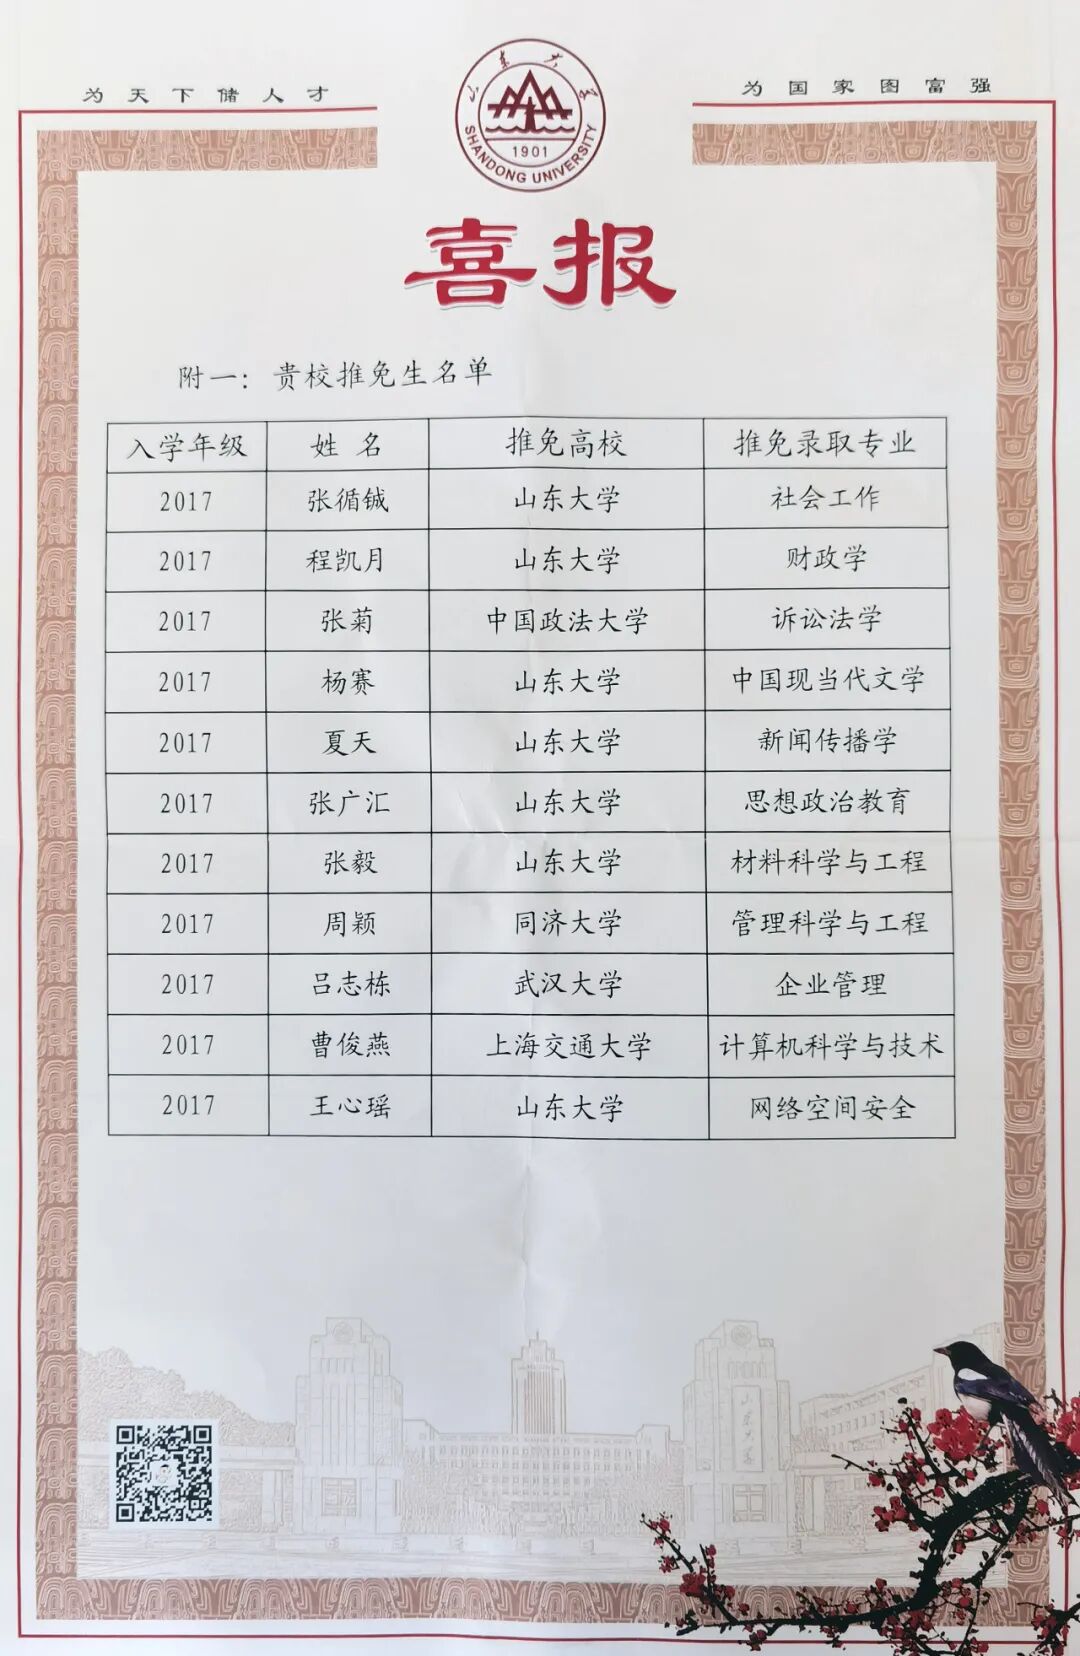 为天下储人才
为国家图富强
山东大学
1901
SHANDONG UNIVERSITY
喜报
附一：贵校推免生名单
入学年级 姓名 推免高校 推免录取专业
2017 张循铖 山东大学 社会工作
2017 程凯月 山东大学 财政学
2017 张菊 中国政法大学 诉讼法学
2017 杨赛 山东大学 中国现当代文学
2017 夏天 山东大学 新闻传播学
2017 张广汇 山东大学 思想政治教育
2017 张毅 山东大学 材料科学与工程
2017 周颖 同济大学 管理科学与工程
2017 吕志栋 武汉大学 企业管理
2017 曹俊燕 上海交通大学 计算机科学与技术
2017 王心瑶 山东大学 网络空间安全
山东大学